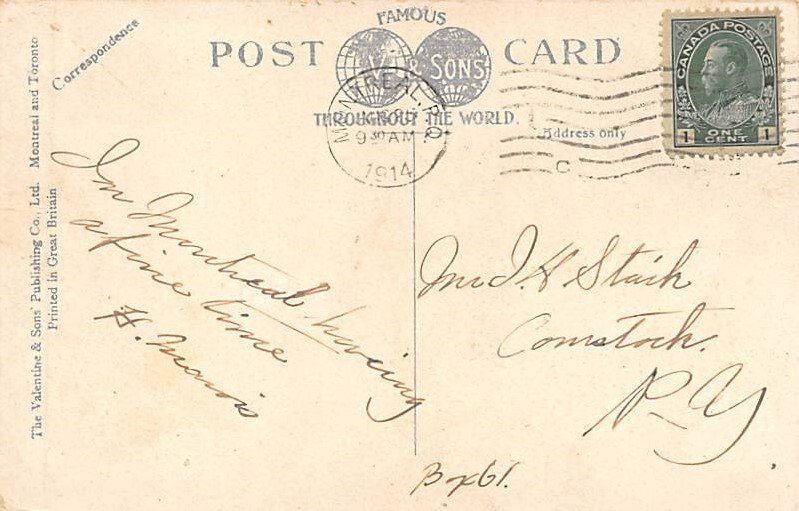 FAMOUS
POST CARD
V & SONS
THROUGHOUT THE WORLD.
Correspondence
Address only
The Valentine & Sons' Publishing Co., Ltd. Montreal and Toronto
Printed in Great Britain
MONTREAL, P.Q.
9 30 AM
1914
C
CANADA POSTAGE
1 ONE CENT 1
In Montreal having
a fine time
H. Morris
Comstock.
N-Y
Box 61.